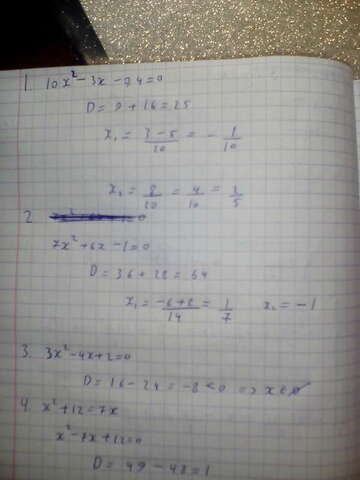 1. 10x² - 3x - 0,4 = 0
D = 9 + 16 = 25
x₁ = (3 - 5)/20 = - 1/10
x₂ = 8/20 = 4/10 = 2/5
2.
7x² + 6x - 1 = 0
D = 36 + 28 = 64
x₁ = (-6 + 8)/14 = 1/7 x₂ = -1
3. 3x² - 4x + 2 = 0
D = 16 - 24 = -8 < 0 => x ∈ ∅
4. x² + 12 = 7x
x² - 7x + 12 = 0
D = 49 - 48 = 1